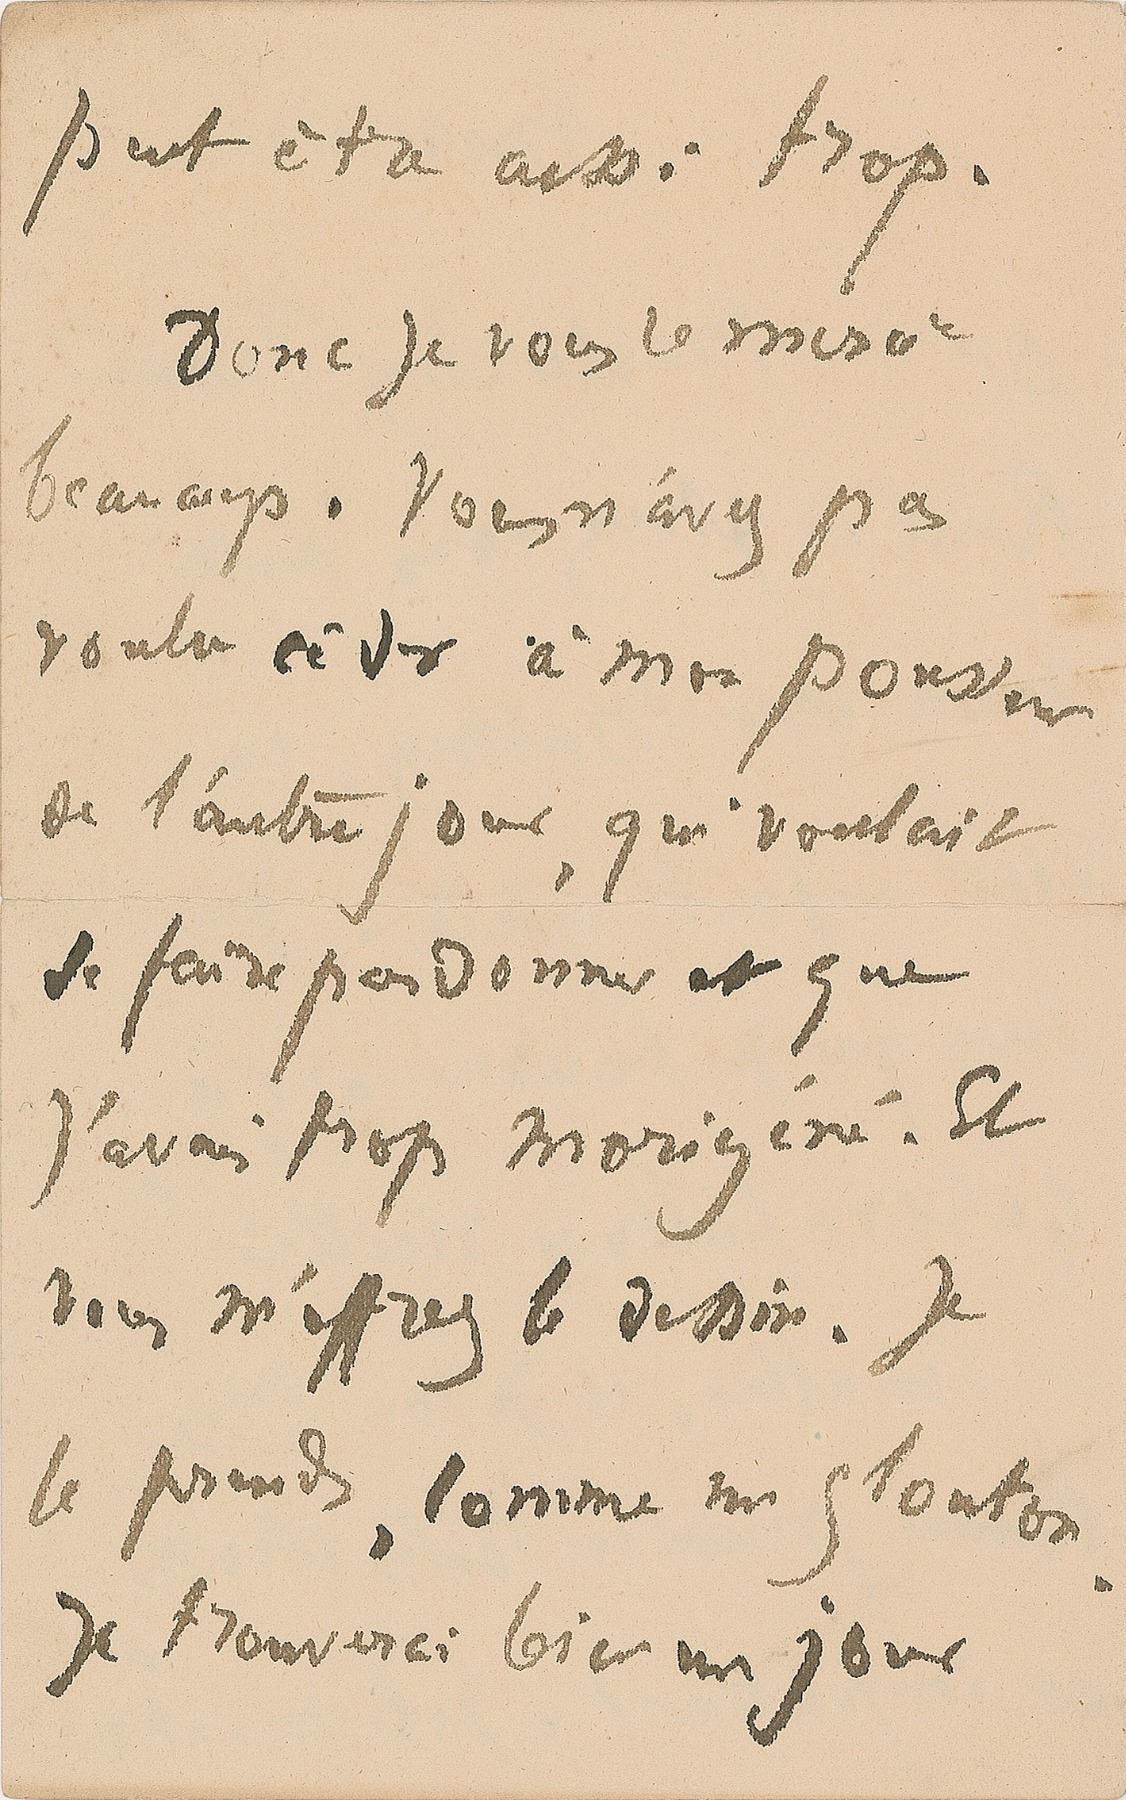 peut être aussi trop.
Donc je vous remercie
beaucoup. Vous n'avez pas
voulu céder à mon
de l'autre jour, qui voulait
se faire pardonner et que
j'avais trop morigéné. Et
vous m'offrez le dessin. Je
le prends, comme un glouton.
Je trouverai bien un jour